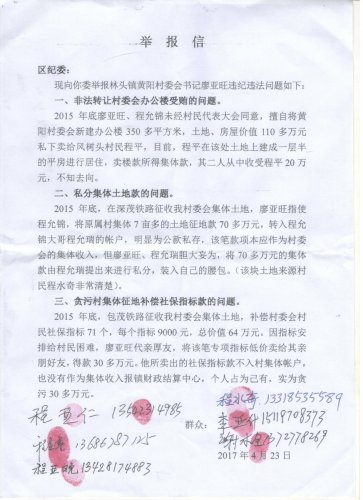 举 报 信
区纪委：
现向你委举报林头镇黄阳村委会书记廖亚旺违纪违法问题如下：
一、非法转让村委会办公楼受贿的问题。
2015 年底廖亚旺、程允锦未经村民代表大会同意，擅自将黄
阳村委会新建办公楼 350 多平方米，土地、房屋价值 110 多万元
私下卖给凤树头村民程平，目前，程平在该处土地上建成一层半
的平房进行居住，卖楼款所得集体款，其二人从中收受程平 20 万
元，不知去向。
二、私分集体土地款的问题。
2015 年底，在深茂铁路征收我村委会集体土地，廖亚旺指使
程允锦，将原属村集体 7 亩多的土地征地款 70 多万元，转入程允
锦大哥程允瑞的帐户，明显为公款私存，该笔款项本应作为村委
会的集体收入，但廖亚旺、程允瑞胆大妄为，将 70 多万元的集体
款由程允瑞提出来进行私分，装入自己的腰包。（该块土地来源村
民程水奇非常清楚）。
三、贪污村集体征地补偿社保指标款的问题。
2015 年底，包茂铁路征收我村委会集体土地，补偿村委会村
民社保指标 71 个，每个指标 9000 元，总价值 64 万元。因指标安
排给村民困难，廖亚旺代亲厚友，将该笔专项指标低价卖给其亲
朋好友，得款 30 多万元。他所卖出的社保指标款不入村集体帐户，
也没有作为集体收入报镇财政结算中心，个人占为己有，实为贪
污 30 多万元。
程水奇 13318535589
程亚仁 13622314985
群众：
13686787125
程亚晓 13428174883
2017 年 4 月 23 日